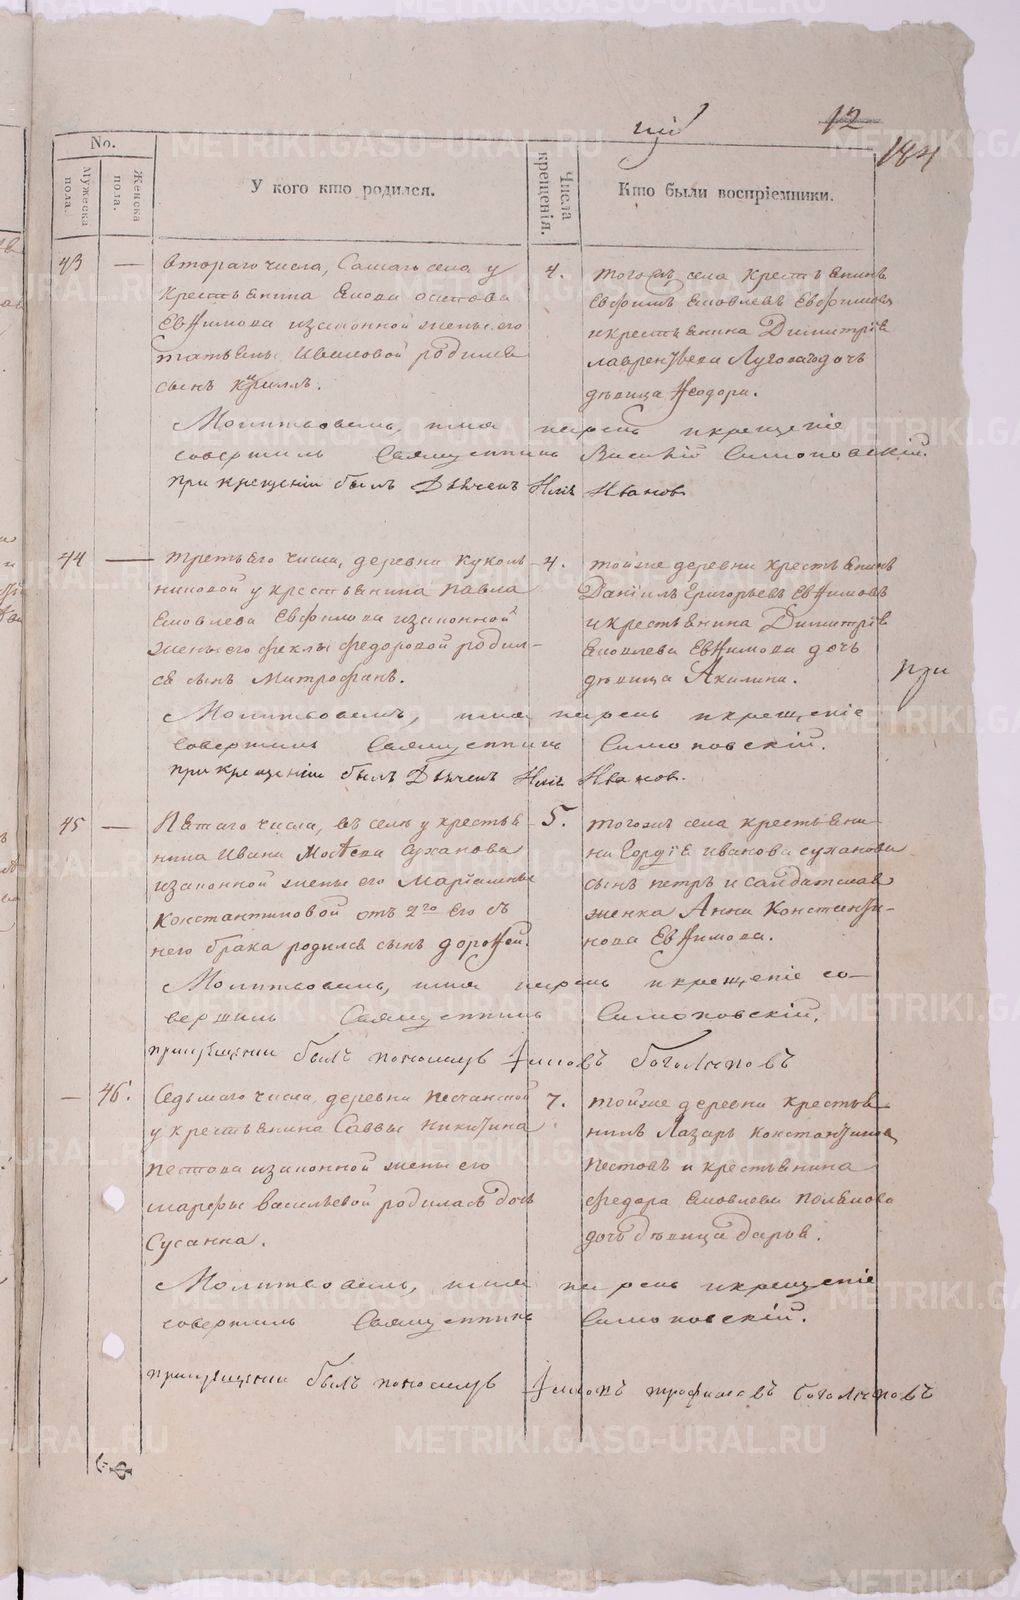 12
184
No.
Мужеска пола.
Женска пола.
У кого кто родился.
Числа крещенія.
Кто были воспріемники.
43 — Втораго числа, Самаго села у
крестьянина Якова Осипова
Евѳимова изаконной жены его
татьяны Ивановой родился
сынъ Кириллъ.
4. тогожъ села крестьянинъ
Евфимъ Яковлевъ Евфимовъ
и крестьянина Димитрія
лаврентьева Луговаго дочь
дѣвица Ѳеодора.
Молитвовалъ, имя нарекъ и крещеніе
совершилъ Священникъ Василій Симоновскій.
при крещеніи былъ Дьячекъ Илія Ивановъ
44 — третьяго числа, деревни Куколь
никовой у крестьянина Павла
Яковлева Евфимова изаконной
жены его феклы федоровой родил-
ся сынъ Митрофанъ.
4. тойже деревни крестьянинъ
Даніилъ Григорьевъ Евѳимовъ
и крестьянина Димитрія
Яковлева Евѳимова дочь
дѣвица Акилина.
при
Молитвовалъ, имя нарекъ и крещеніе
совершилъ Священникъ Симоновскій.
при крещеніи былъ Дьячекъ Илія Ивановъ.
45 — Пятаго числа, въ селѣ у крестья
нина Ивана Моѵсеева Суханова
изаконной жены его Маріамны
Константиновой отъ 2го его съ
него брака родился сынъ дороѳей.
5. тогожъ села крестьяни-
на Гордія иванова суханова
сынъ петръ и салдатская
женка Анна Константи-
нова Евѳимова.
Молитвовалъ, имя нарекъ и крещеніе со-
вершилъ Священникъ Симоновскій.
прикрещении былъ пономарь Яковъ боголеповъ
— 46. Седьмаго числа, деревни песчанской
у крестьянина Саввы никитина
пестова изаконной жены его
марфы васильевой родилась дочь
Сусанна.
7. тойже деревни крестья
нинъ Лазарь константиновъ
пестовъ и крестьянина
федора Яковлева полякова
дочь дѣвица дарья.
Молитвовалъ, имя нарекъ и крещеніе
совершилъ Священникъ Симоновскій.
прикрещении былъ пономарь Яковъ трофимовъ боголеповъ
METRIKI.GASO-URAL.RU